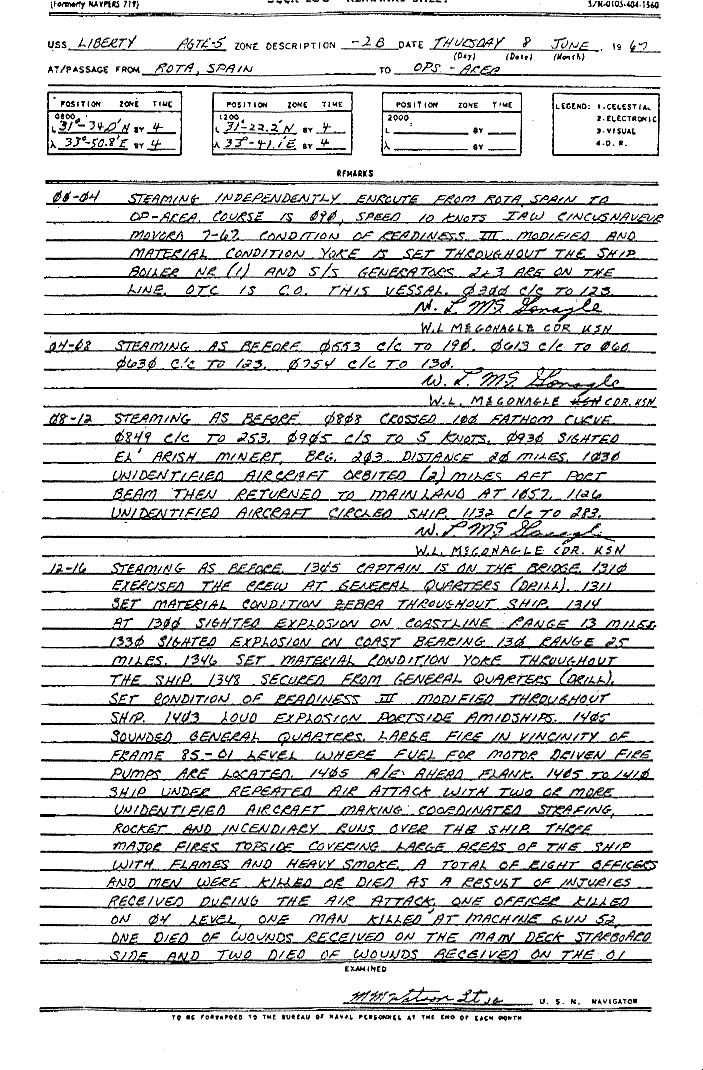 (Formerly NAVPERS 719) S/N-0105-404-1360
USS LIBERTY AGTR-5 ZONE DESCRIPTION -2B DATE THURSDAY 8 JUNE, 1967
(Day) (Date) (Month)
AT/PASSAGE FROM ROTA, SPAIN TO OPS - AREA
POSITION ZONE TIME POSITION ZONE TIME POSITION ZONE TIME LEGEND: 1-CELESTIAL
0800 1200 2000 2-ELECTRONIC
L 31°-34.0'N BY 4 L 31-22.2'N BY 4 L BY 3-VISUAL
λ 33°-50.8'E BY 4 λ 33°-41.1'E BY 4 λ BY 4-D.R.
REMARKS
00-04 STEAMING INDEPENDENTLY ENROUTE FROM ROTA, SPAIN TO
OP-AREA. COURSE IS 090, SPEED 10 KNOTS IAW CINCUSNAVEUR
MOVORD 7-67. CONDITION OF READINESS III MODIFIED AND
MATERIAL CONDITION YOKE IS SET THROUGHOUT THE SHIP
BOILER NR (1) AND S/S GENERATORS 2&3 ARE ON THE
LINE. OTC IS C.O. THIS VESSEL. c/c TO 123.
W. L. McGonagle
W.L. MCGONAGLE CDR USN
04-08 STEAMING AS BEFORE 0553 c/c TO 190. 0613 c/c TO 060
0630 c/c TO 123. 0754 c/c TO 130.
W. L. McGonagle
W.L. MCGONAGLE CDR. USN
08-12 STEAMING AS BEFORE 0808 CROSSED 100 FATHOM CURVE
0849 c/c TO 253. 0905 c/s TO 5 KNOTS. 0930 SIGHTED
EL' ARISH MINERT, BRG. 203. DISTANCE 20 MILES. 1030
UNIDENTIFIED AIRCRAFT ORBITED (2) MILES AFT PORT
BEAM THEN RETURNED TO MAINLAND AT 1057. 1126
UNIDENTIFIED AIRCRAFT CIRCLED SHIP. 1132 c/c TO 283.
W. L. McGonagle
W.L. MCGONAGLE CDR. USN
12-16 STEAMING AS BEFORE. 1305 CAPTAIN IS ON THE BRIDGE. 1310
EXERCISED THE CREW AT GENERAL QUARTERS (DRILL). 1311
SET MATERIAL CONDITION ZEBRA THROUGHOUT SHIP. 1314
AT 1300 SIGHTED EXPLOSION ON COASTLINE RANGE 13 MILES.
1330 SIGHTED EXPLOSION ON COAST BEARING 130 RANGE 25
MILES. 1346 SET MATERIAL CONDITION YOKE THROUGHOUT
THE SHIP. 1348 SECURED FROM GENERAL QUARTERS (DRILL).
SET CONDITION OF READINESS III MODIFIED THROUGHOUT
SHIP. 1403 LOUD EXPLOSION PORTSIDE AMIDSHIPS. 1405
SOUNDED GENERAL QUARTERS. LARGE FIRE IN VINCINITY OF
FRAME 85-01 LEVEL WHERE FUEL FOR MOTOR DRIVEN FIRE
PUMPS ARE LOCATED. 1405 A/E AHEAD FLANK. 1405 TO 1410
SHIP UNDER REPEATED AIR ATTACK WITH TWO OR MORE
UNIDENTIFIED AIRCRAFT MAKING COORDINATED STRAFING,
ROCKET AND INCENDIARY RUNS OVER THE SHIP THREE
MAJOR FIRES TOPSIDE COVERING LARGE AREAS OF THE SHIP
WITH FLAMES AND HEAVY SMOKE. A TOTAL OF EIGHT OFFICERS
AND MEN WERE KILLED OR DIED AS A RESULT OF INJURIES
RECEIVED DURING THE AIR ATTACK, ONE OFFICER KILLED
ON 04 LEVEL, ONE MAN KILLED AT MACHINE GUN 52,
ONE DIED OF WOUNDS RECEIVED ON THE MAIN DECK STARBOARD
SIDE AND TWO DIED OF WOUNDS RECEIVED ON THE 01
EXAMINED
U. S. N. NAVIGATOR
TO BE FORWARDED TO THE BUREAU OF NAVAL PERSONNEL AT THE END OF EACH MONTH